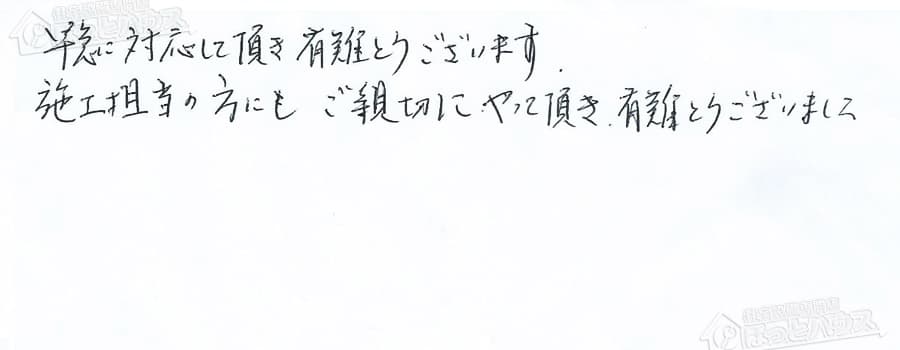 早急に対応して頂き有難とうございます.
施工担当の方にも ご親切にやって頂き、有難とうございました
住宅設備専門店
ほっとハウス